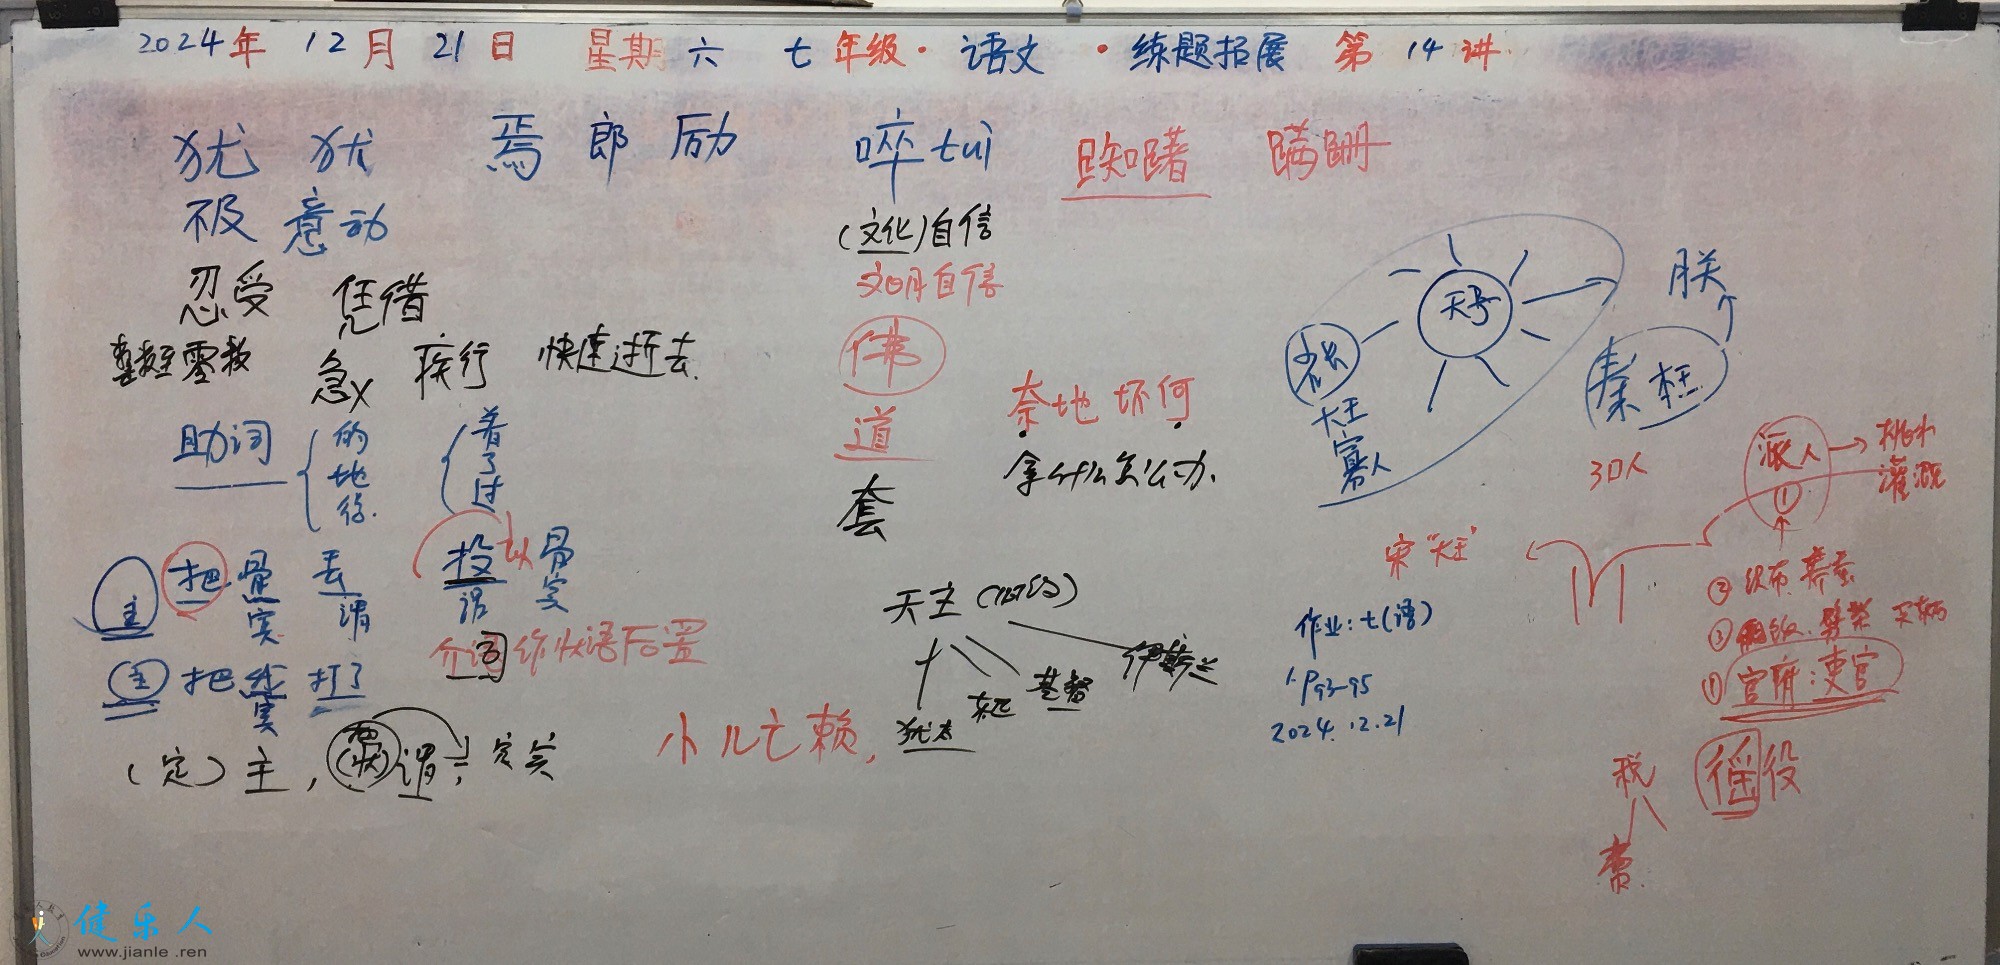 2024年 12月 21日 星期六 七年级·语文·练题拓展 第14讲
犹 犹 焉 郎 励 啐 tuì 踟躇 蹒跚
极 意动
(文化)自信
忍受 凭借
文明自信
整数至零数 急 疾行 快速逝去
佛
道
套
奈地坏何
拿什么怎么办
助词 的 地 得 着 了 过
主 把骨丢 投以骨
宾 谓 谓 宾
介词作状语后置
主 把 打了
宾
(定)主,(状)谓 定宾
小儿亡赖,
天主(
犹太 东正 基督 伊斯兰
天子
朕
大王
寡人
秦王
30人
宋"大王"
派人 ① 挑水
灌溉
② 织布 养蚕
③
① 官府:吏官
作业:七(语)
1. P93-95
2024.12.21
税 徭役
赍
健乐人
www.jianle.ren